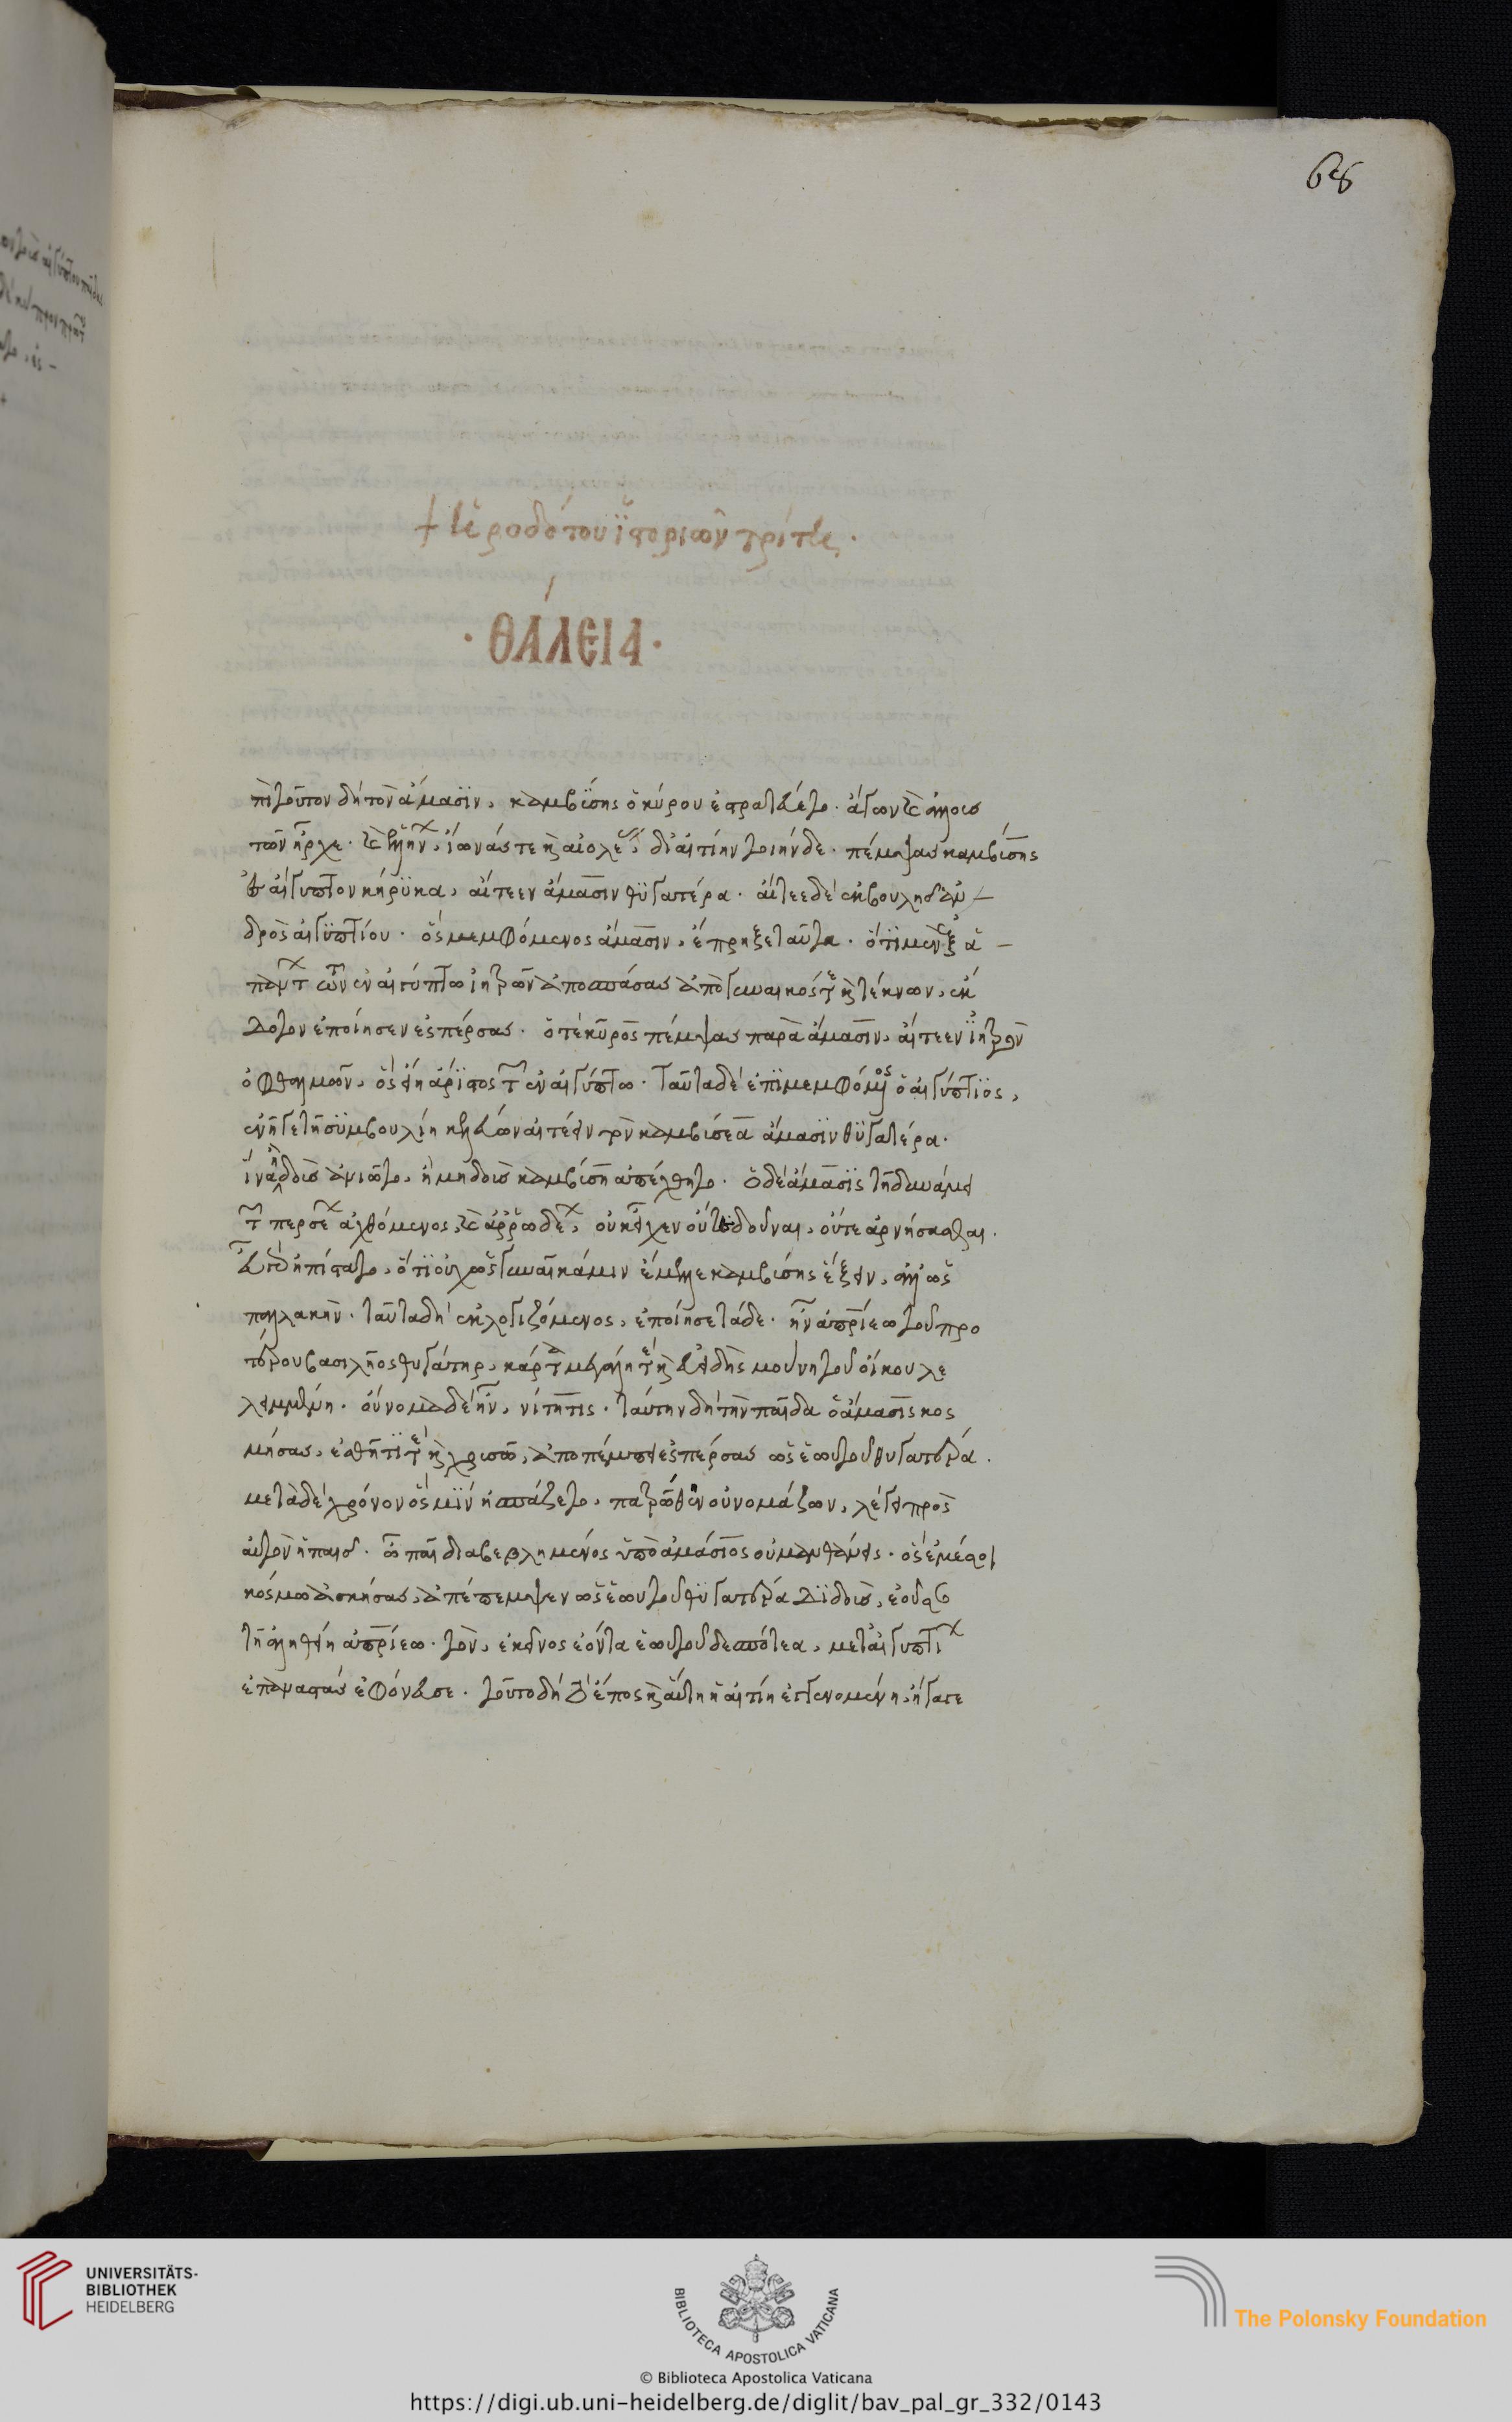 68
+ ἡροδότου ἱστοριῶν τρίτη.
· ΘΆΛΕΙΑ ·
πὶ τοῦτον δὴ τὸν ἄμασϊν, καμβύσης ὁ κύρου ἐστρατεύετο. ἄγων καὶ ἄλλους
τῶν ἦρχε. καὶ ἑλλήνων, ἴωνάς τε καὶ αἰολέας, δι' αἰτίην τοιήνδε. πέμψας καμβύσης
ἐς αἴγυπτον κήρϋκα, αἴτεεν ἄμασιν θϋγατέρα. αἴτεε δὲ ἐκ βουλῆς ἀν
δρὸς αἰγϋπτίου. ὃς μεμφόμενος ἄμασιν, ἔπρηξε ταῦτα. ὅτϊ μὲν ἐξ ἁ
πάντων τῶν ἐν αἰγύπτω ἰητρῶν ἀποσπάσας ἀπὸ γυναικός τε καὶ τέκνων, ἔκ
δοτον ἐποίησεν ἐς πέρσας. ὅτε κῦρος πέμψας παρὰ ἄμασιν, αἴτεεν ἰητρὸν
ὀφθαλμῶν, ὃς εἴη ἄρϊστος τῶν ἐν αἰγύπτω. ταῦτα δὲ ἐπϊμεμφόμενος ὁ αἰγύπτϊος,
ἐνῆγε τῆ σϋμβουλίη κελεύων αἰτέειν τὸν καμβύσεα ἄμασϊν θϋγατέρα.
ἵνα ἢ δοὺς ἀνιῶτο, ἢ μὴ δοὺς καμβύση ἀπέχθοιτο. ὁ δὲ ἄμασϊς τῆ δυνάμει
τῶν περσέων ἀχθόμενος, καὶ ἀρρωδέων, οὐκ εἶχεν οὔτε δοῦναι, οὔτε ἀρνήσασθαι.
εὖ γὰρ ἠπίστατο, ὅτϊ οὐχ ὡς γυναῖκά μιν ἔμελλε καμβύσης ἕξειν, ἀλλ' ὡς
παλλακήν. ταῦτα δὴ ἐκλογιζόμενος, ἐποίησε τάδε. ἦν ἀπρίεω τοῦ προ
τέρου βασιλῆος θυγάτηρ, κάρτα μεγάλη τε καὶ εὐειδὴς μούνη τοῦ οἴκου λε
λειμμένη. οὔνομα δὲ ἦν, νίτητις. ταύτην δὴ τὴν παῖδα ὁ ἄμασις κοσ
μήσας, ἐσθῆτϊ τε καὶ χρυσῶ, ἀποπέμπει ἐς πέρσας ὡς ἑωυτοῦ θυγατέρα.
μετὰ δὲ χρόνον ὥς μϊν ἠσπάζετο, πατρόθεν οὐνομάζων, λέγει πρὸς
αὐτὸν ἡ παῖς. ὦ βασιλεῦ διαβεβλημένος ὑπὸ ἀμάσϊος οὐ μανθάνεις. ὃς ἐμέ σοι
κόσμω ἀσκήσας, ἀπέπεμψεν ὡς ἑωυτοῦ θϋγατέρα δϊδοὺς, ἐοῦσαν
τῆ ἀληθείη ἀπρίεω. τὸν, ἐκεῖνος ἐόντα ἑωυτοῦ δεσπότεα, μετ' αἰγυπτίων
ἐπαναστὰς ἐφόνευσε. τοῦτο δὴ τὸ ἔπος καὶ αὕτη ἡ αἰτίη ἐγγενομένη, ἤγαγε
UNIVERSITÄTS-
BIBLIOTHEK
HEIDELBERG
BIBLIOTECA APOSTOLICA VATICANA
The Polonsky Foundation
© Biblioteca Apostolica Vaticana
https://digi.ub.uni-heidelberg.de/diglit/bav_pal_gr_332/0143